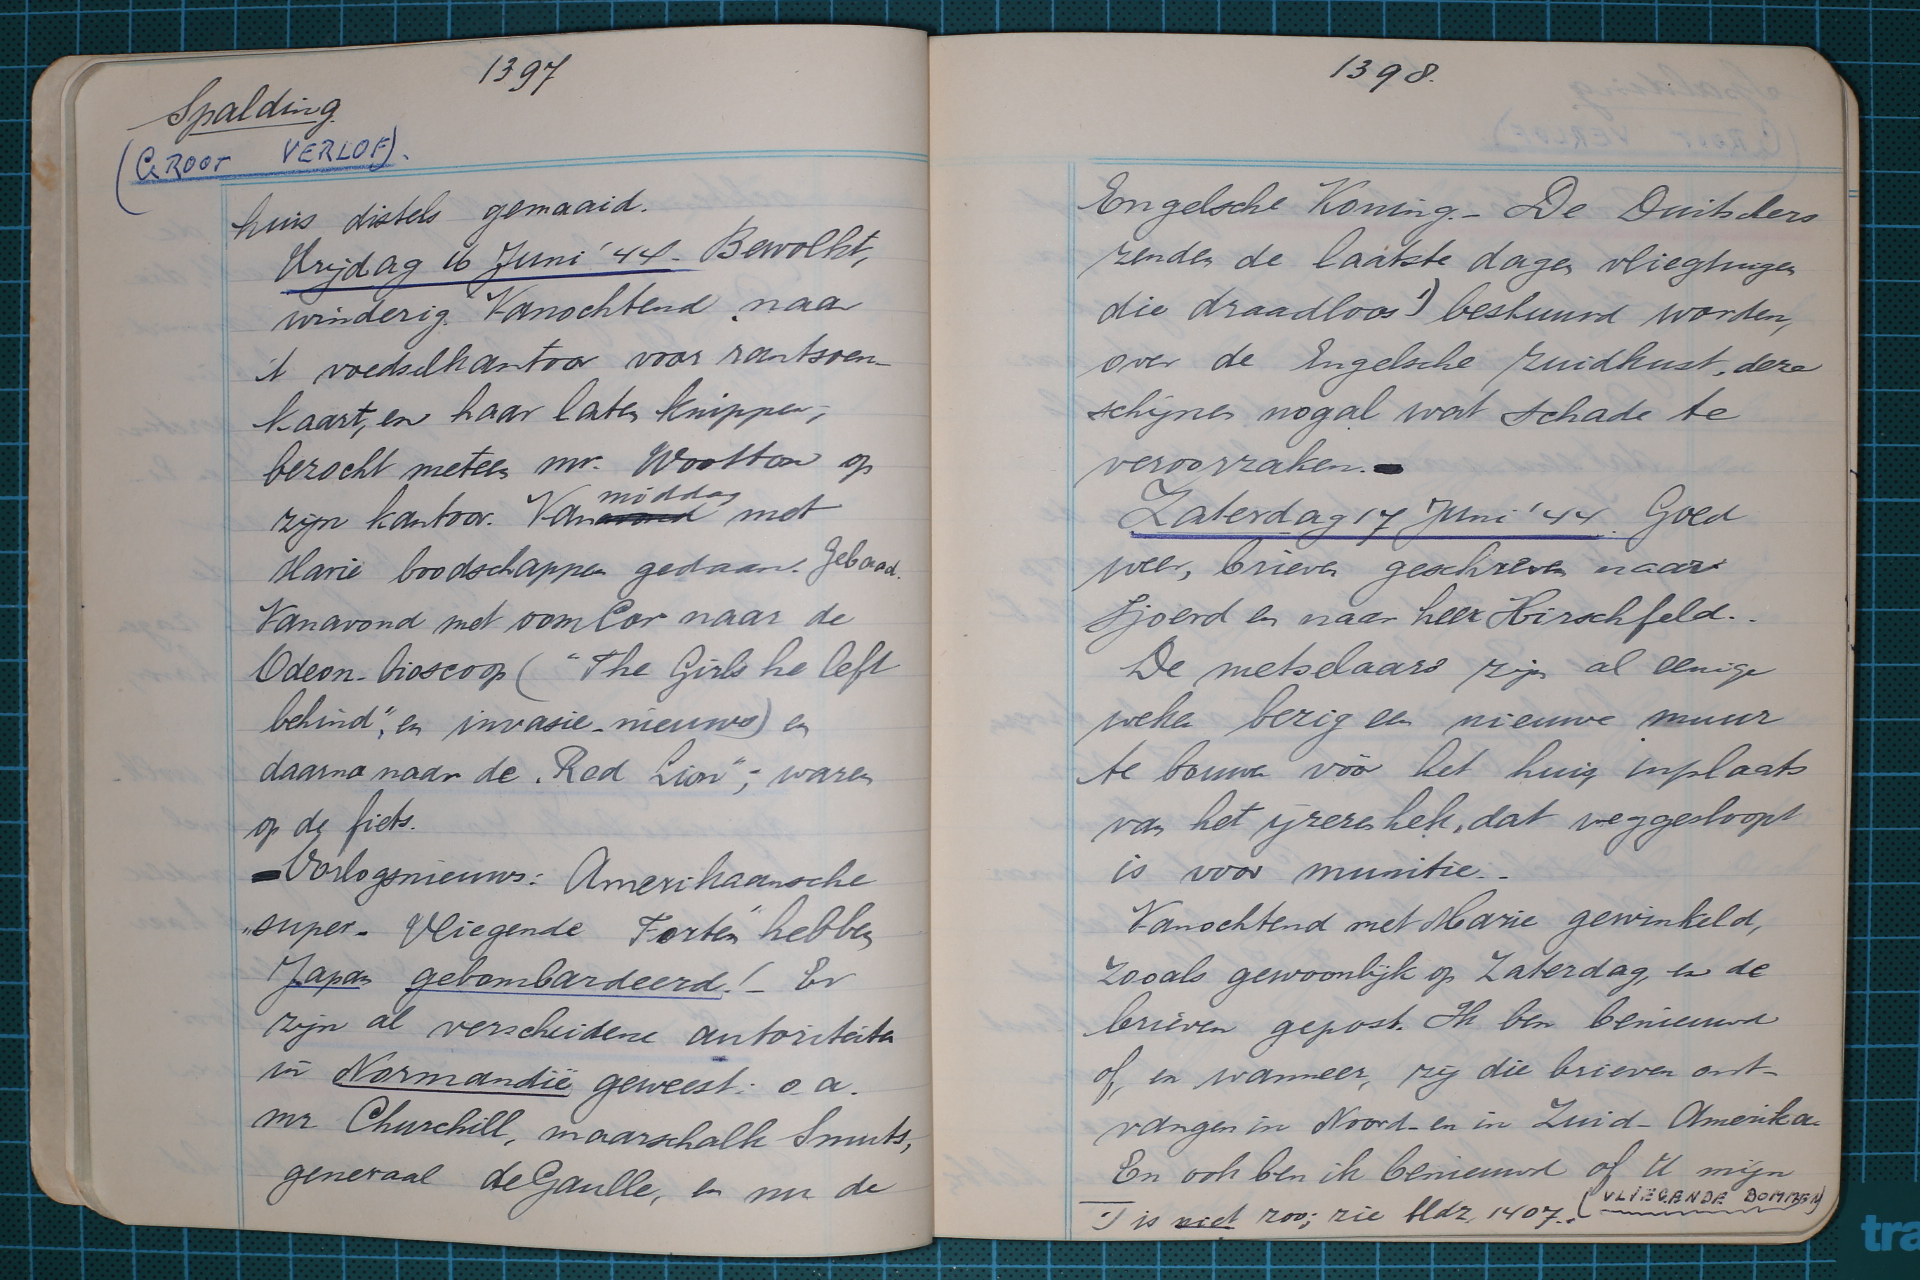 1397
Spalding
(GROOT VERLOF).
huis distels gemaaid.
Vrijdag 16 Juni '44. Bewolkt,
winderig. Vanochtend naar
't voedselkantoor voor rantsoen-
kaart, en haar laten knippen;
bezocht meteen mr. Wootton op
middag
zijn kantoor. Vanavond met
Marie boodschappen gedaan. Gebaad.
Vanavond met oom Cor naar de
Odeon-bioscoop ("The Girls he left
behind", en invasie-nieuws) en
daarna naar de "Red Lion"; waren
op de fiets.
Oorlogsnieuws: Amerikaansche
"super-Vliegende Forten" hebben
Japan gebombardeerd! - Er
zijn al verscheidene autoriteiten
in Normandië geweest: o.a.
mr Churchill, maarschalk Smuts,
generaal de Gaulle, en nu de
1398.
Engelsche Koning. - De Duitschers
zenden de laatste dagen vliegtuigen
die draadloos 1) bestuurd worden,
over de Engelsche zuidkust, deze
schijnen nogal wat schade te
veroorzaken.
Zaterdag 17 Juni '44. Goed
weer, brieven geschreven naar
Sjoerd en naar heer Hirschfeld..
De metselaars zijn al eenige
weken bezig een nieuwe muur
te bouwen vóór het huis inplaats
van het ijzeren hek, dat weggesloopt
is voor munitie..
Vanochtend met Marie gewinkeld,
zooals gewoonlijk op Zaterdag, en de
brieven gepost. Ik ben benieuwd
of, en wanneer, zij die brieven ont-
vangen in Noord- en in Zuid-Amerika.
En ook ben ik benieuwd of U mijn
1) is niet zoo; zie bldz. 1407. (VLIEGENDE BOMMEN)
tra